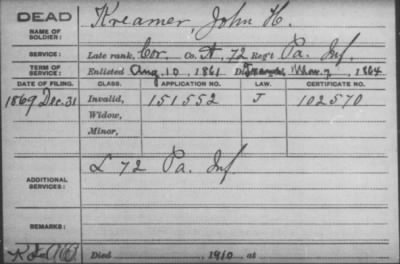 DEAD
NAME OF SOLDIER: Kreamer, John H.
SERVICE: Late rank, Cor. Co. A, 72 Reg't Pa. Inf.
TERM OF SERVICE: Enlisted Aug. 10, 1861 , 1864
DATE OF FILING. CLASS. APPLICATION NO. LAW. CERTIFICATE NO.
1869 Dec. 31 Invalid, 151552 J 102570
Widow,
Minor,
ADDITIONAL SERVICES: L 72 Pa. Inf
REMARKS:
Died 1910, at